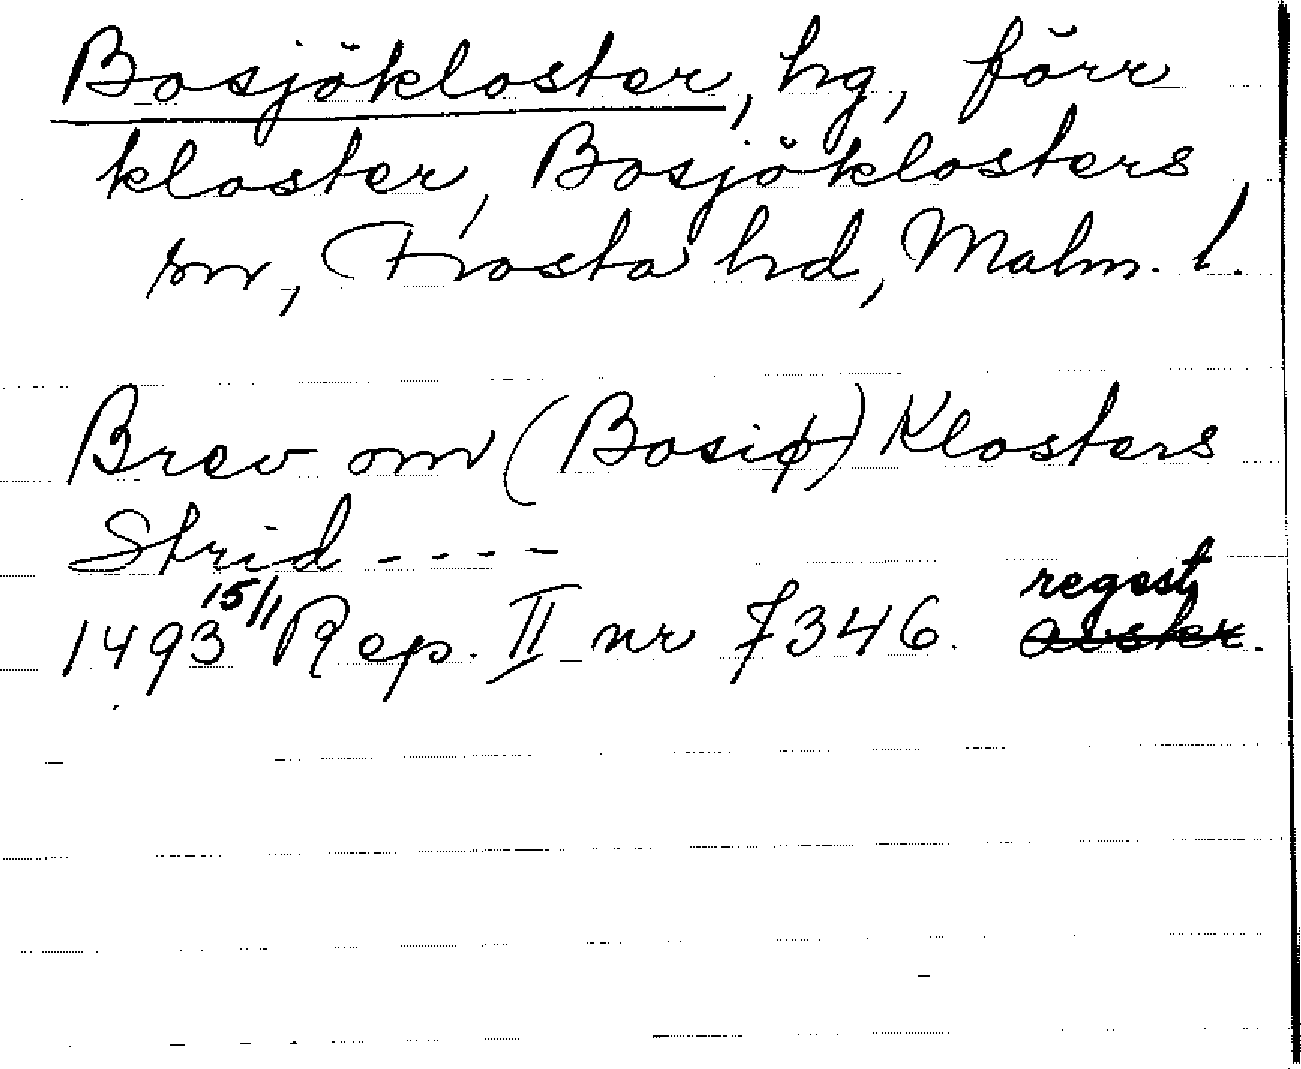 Bosjökloster, hg, förr
kloster, Bosjöklosters
sn, Frosta hd, Malm. l.
Brev om (Bosiø) Klosters
Strid - - - -
1493 15/1 Rep. II nr 7346. regest avskr.